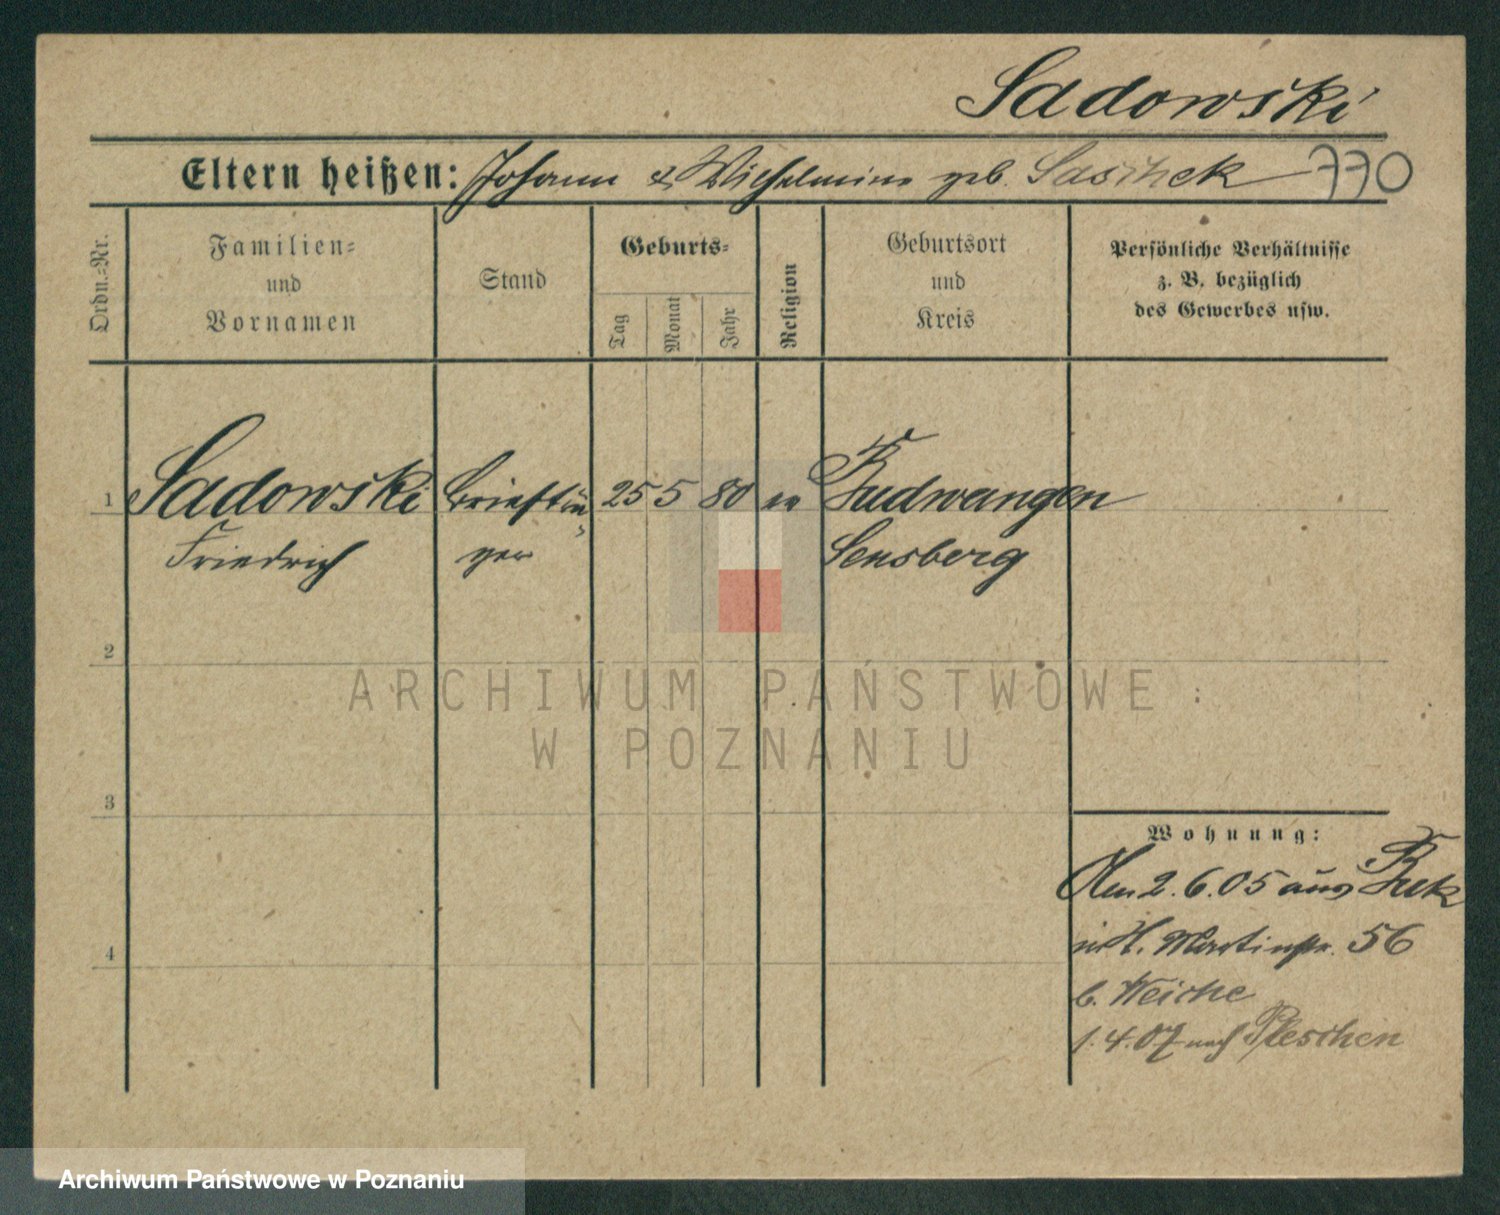 Sadowski
Eltern heißen: Johann & Wilhelmine geb. Saschek 770
Ordn.=Nr.
Familien=
und
Vornamen
Stand
Geburts=
Tag
Monat
Jahr
Religion
Geburtsort
und
Kreis
Persönliche Verhältnisse
z. B. bezüglich
des Gewerbes usw.
1 Sadowski Briefträ= 25 5 80 ev Budwangen
Friedrich ger Sensberg
2
3
4
Wohnung:
Den 2.6.05 aus Buk
in H. Martinstr. 56
b. Weiche
1.4.07 nach Pleschen
ARCHIWUM PAŃSTWOWE
W POZNANIU
Archiwum Państwowe w Poznaniu